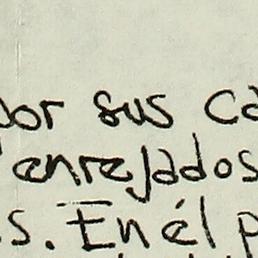 por sus ca
enrejados
s. En él p